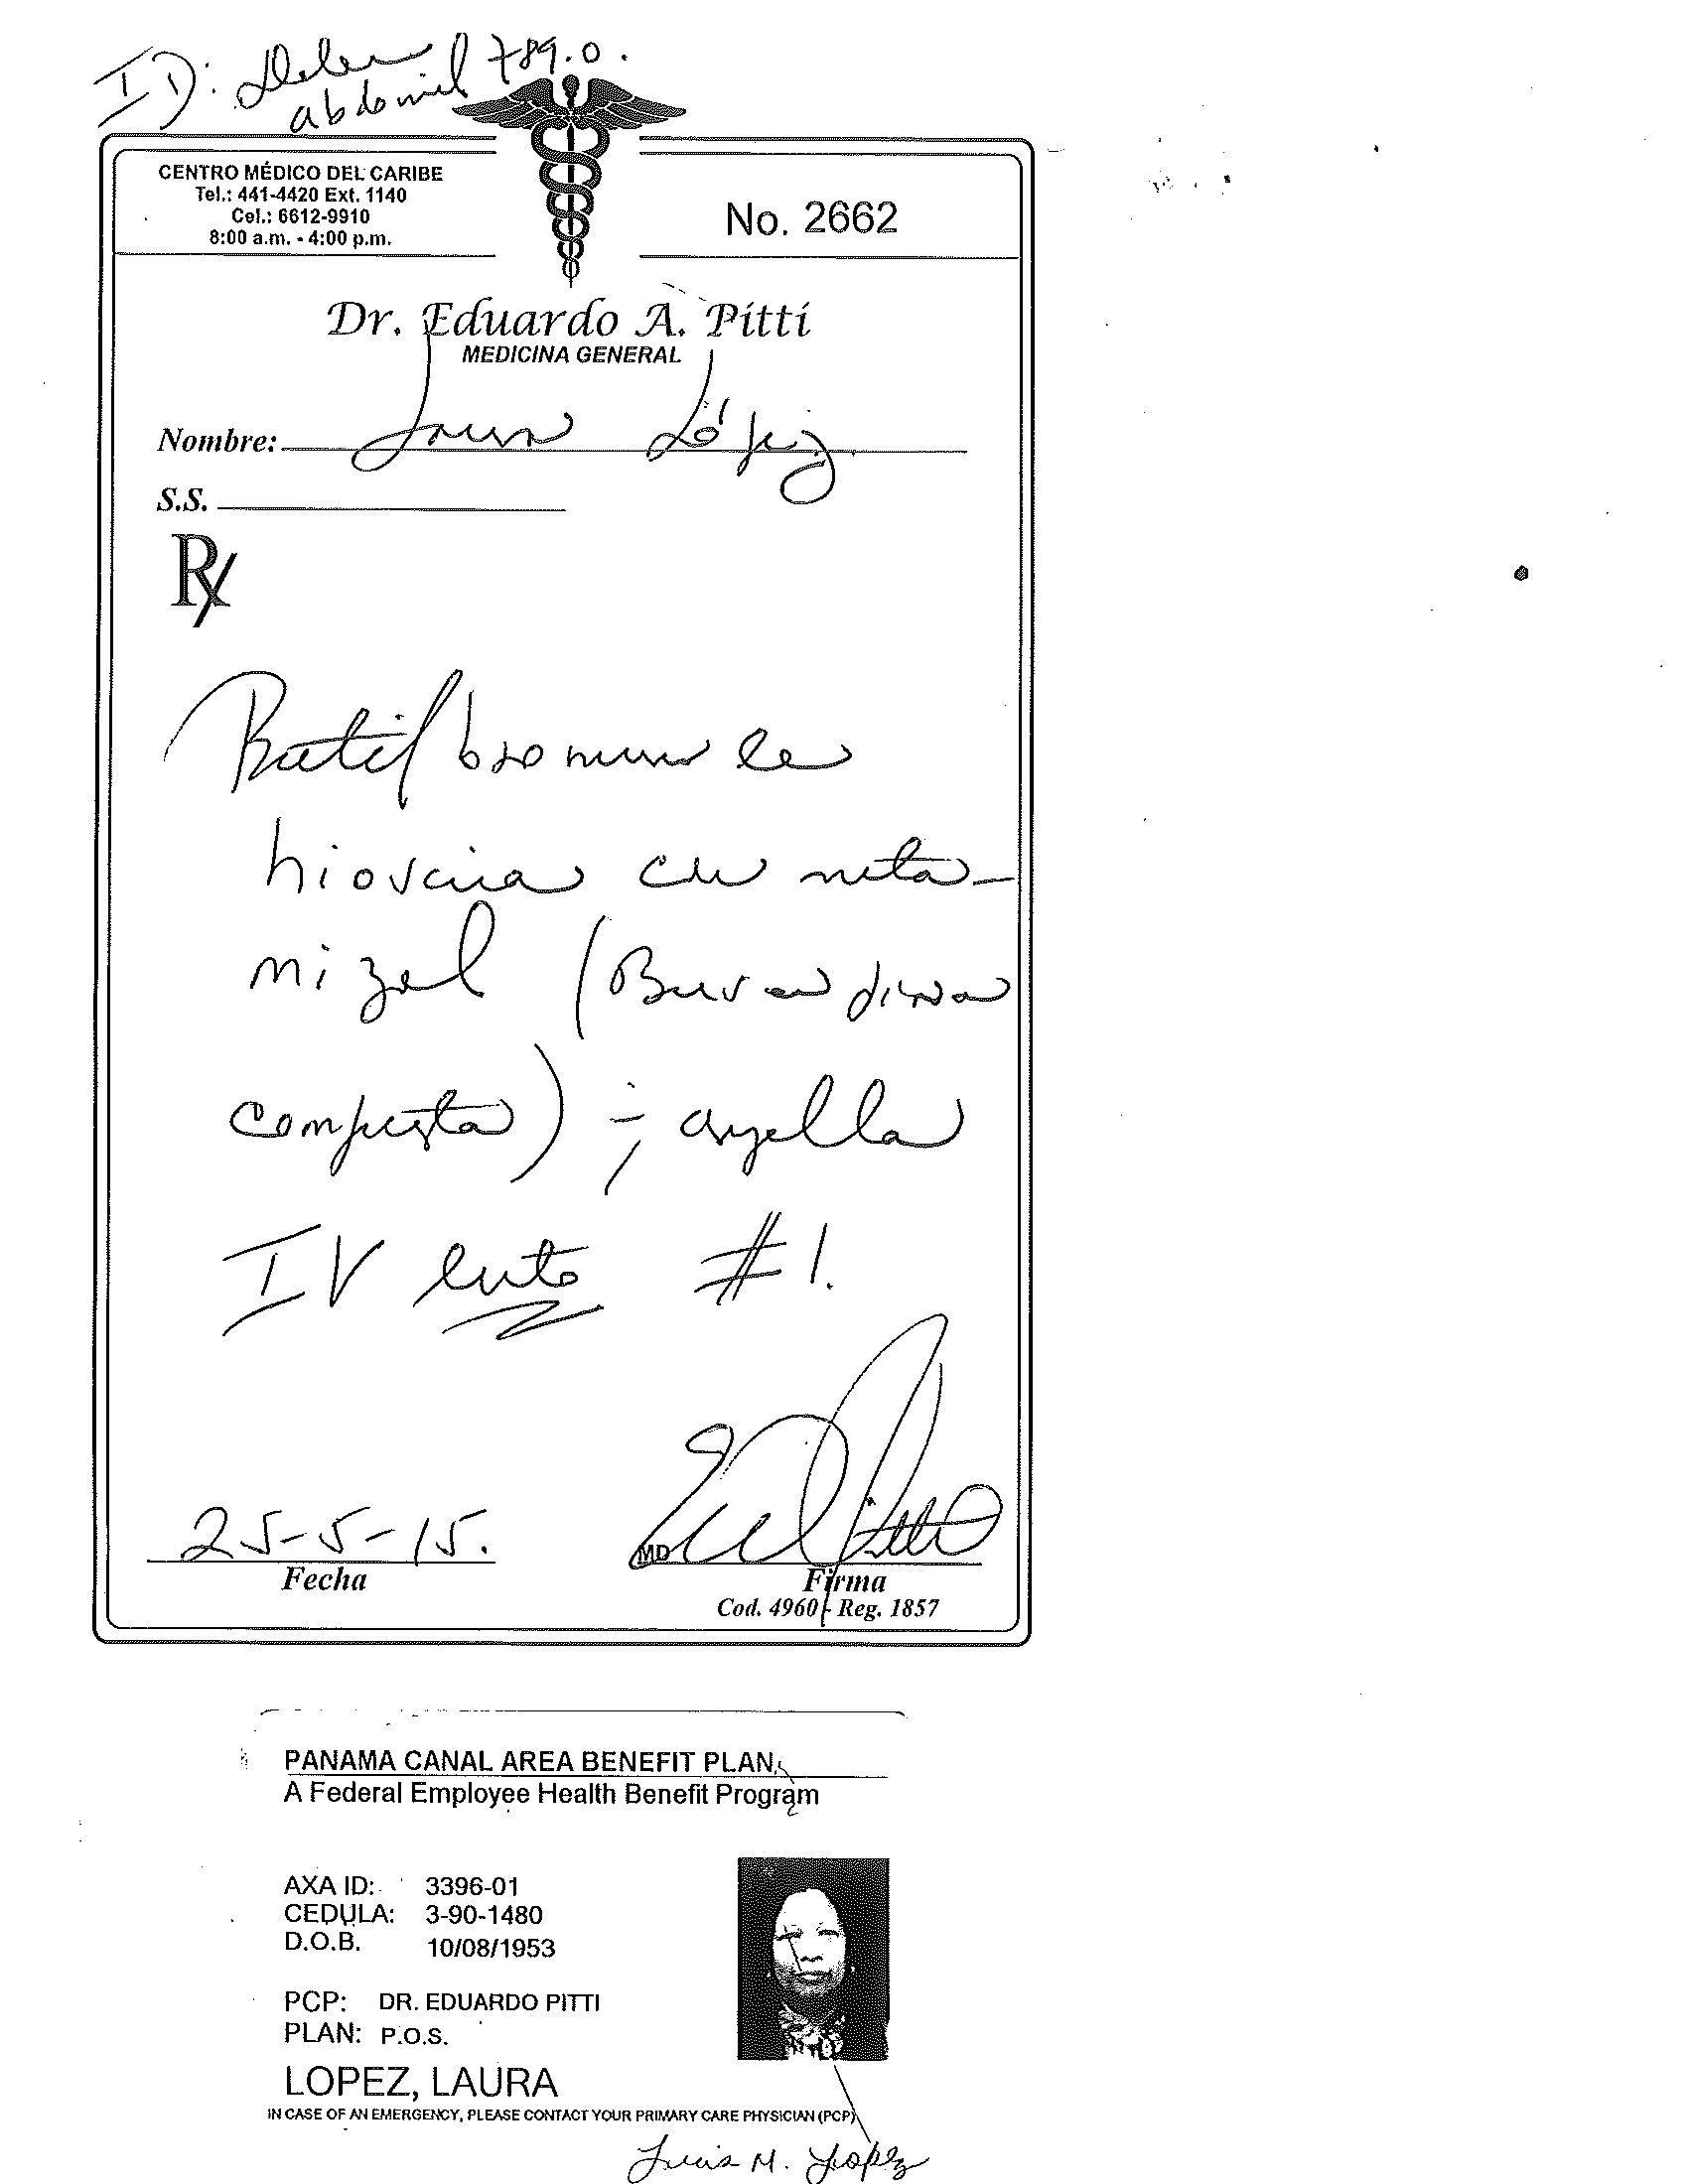 ID: Dolor 789.0.
abdominal
CENTRO MÉDICO DEL CARIBE
Tel.: 441-4420 Ext. 1140
Cel.: 6612-9910
8:00 a.m. - 4:00 p.m.
No. 2662
Dr. Eduardo A. Pitti
MEDICINA GENERAL
Nombre: Laura López
S.S.
Rx
Butilbromuro de
hioscina con meta-
mizol (Buscapina
compuesta) ; ampolla
IV lento #1.
25-5-15.
Fecha
MD
Firma
Cod. 4960 - Reg. 1857
PANAMA CANAL AREA BENEFIT PLAN
A Federal Employee Health Benefit Program
AXA ID: 3396-01
CEDULA: 3-90-1480
D.O.B. 10/08/1953
PCP: DR. EDUARDO PITTI
PLAN: P.O.S.
LOPEZ, LAURA
IN CASE OF AN EMERGENCY, PLEASE CONTACT YOUR PRIMARY CARE PHYSICIAN (PCP)
M. Lopez